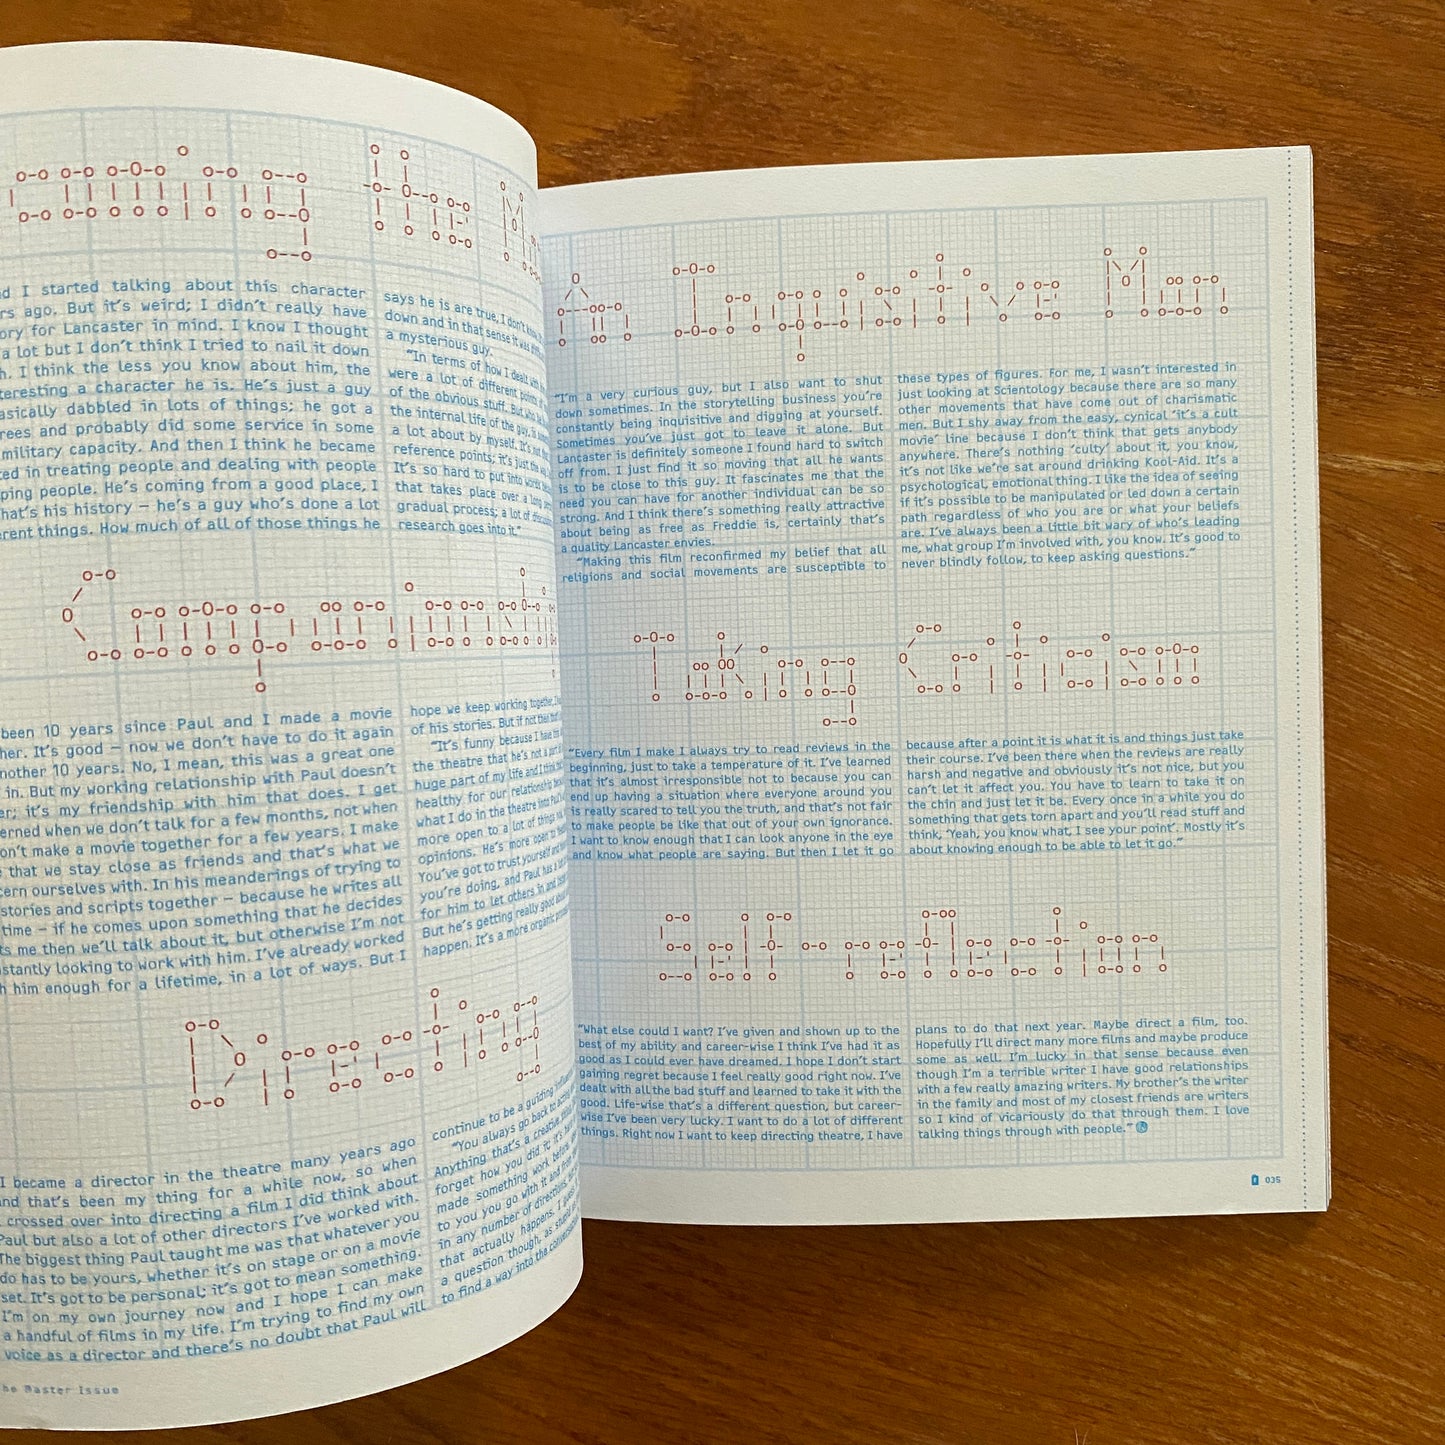 coming the
I started talking about this character
ago. But it's weird; I didn't really have
for Lancaster in mind. I know I thought
a lot but I don't think I tried to nail it down
I think the less you know about him, the
a character he is. He's just a guy
dabbled in lots of things; he got a
and probably did some service in some
military capacity. And then I think he became
in treating people and dealing with people
people. He's coming from a good place, I
his history – he's a guy who's done a lot
things. How much of all of those things he
says he is are true, I don't
down and in that sense it was
a mysterious guy.
"In terms of how I dealt with
were a lot of different points of
of the obvious stuff. But
the internal life of the guy,
a lot about by myself. It's not
reference points; it's just the
It's so hard to put into words
that takes place over a long
gradual process; a lot of
research goes into it."
been 10 years since Paul and I made a movie
It's good – now we don't have to do it again
10 years. No, I mean, this was a great one
in. But my working relationship with Paul doesn't
it's my friendship with him that does. I get
when we don't talk for a few months, not when
make a movie together for a few years. I make
that we stay close as friends and that's what we
ourselves with. In his meanderings of trying to
stories and scripts together – because he writes all
time – if he comes upon something that he decides
me then we'll talk about it, but otherwise I'm not
looking to work with him. I've already worked
him enough for a lifetime, in a lot of ways. But I
hope we keep working together,
of his stories. But if not then
"It's funny because I have
the theatre that he's not a part
huge part of my life and I think
healthy for our relationship
what I do in the theatre into
more open to a lot of things
opinions. He's more open to
You've got to trust yourself and
you're doing, and Paul has a
for him to let others in and
But he's getting really good about
happen. It's a more organic
Directing
I became a director in the theatre many years ago
and that's been my thing for a while now, so when
crossed over into directing a film I did think about
Paul but also a lot of other directors I've worked with.
The biggest thing Paul taught me was that whatever you
do has to be yours, whether it's on stage or on a movie
set. It's got to be personal; it's got to mean something.
I'm on my own journey now and I hope I can make
a handful of films in my life. I'm trying to find my own
voice as a director and there's no doubt that Paul will
continue to be a guiding
"You always go back to
Anything that's a creative
forget how you did it; it's
made something work before
to you you go with it and
in any number of directions,
that actually happens. I
a question though, as stupid
to find a way into the conversation
Master Issue
An Inquisitive Man
"I'm a very curious guy, but I also want to shut
down sometimes. In the storytelling business you're
constantly being inquisitive and digging at yourself.
Sometimes you've just got to leave it alone. But
Lancaster is definitely someone I found hard to switch
off from. I just find it so moving that all he wants
is to be close to this guy. It fascinates me that the
need you can have for another individual can be so
strong. And I think there's something really attractive
about being as free as Freddie is, certainly that's
a quality Lancaster envies.
"Making this film reconfirmed my belief that all
religions and social movements are susceptible to
these types of figures. For me, I wasn't interested in
just looking at Scientology because there are so many
other movements that have come out of charismatic
men. But I shy away from the easy, cynical 'it's a cult
movie' line because I don't think that gets anybody
anywhere. There's nothing 'culty' about it, you know,
it's not like we're sat around drinking Kool-Aid. It's a
psychological, emotional thing. I like the idea of seeing
if it's possible to be manipulated or led down a certain
path regardless of who you are or what your beliefs
are. I've always been a little bit wary of who's leading
me, what group I'm involved with, you know. It's good to
never blindly follow, to keep asking questions."
Taking Criticism
"Every film I make I always try to read reviews in the
beginning, just to take a temperature of it. I've learned
that it's almost irresponsible not to because you can
end up having a situation where everyone around you
is really scared to tell you the truth, and that's not fair
to make people be like that out of your own ignorance.
I want to know enough that I can look anyone in the eye
and know what people are saying. But then I let it go
because after a point it is what it is and things just take
their course. I've been there when the reviews are really
harsh and negative and obviously it's not nice, but you
can't let it affect you. You have to learn to take it on
the chin and just let it be. Every once in a while you do
something that gets torn apart and you'll read stuff and
think, 'Yeah, you know what, I see your point'. Mostly it's
about knowing enough to be able to let it go."
Self-reflection
"What else could I want? I've given and shown up to the
best of my ability and career-wise I think I've had it as
good as I could ever have dreamed. I hope I don't start
gaining regret because I feel really good right now. I've
dealt with all the bad stuff and learned to take it with the
good. Life-wise that's a different question, but career-
wise I've been very lucky. I want to do a lot of different
things. Right now I want to keep directing theatre, I have
plans to do that next year. Maybe direct a film, too.
Hopefully I'll direct many more films and maybe produce
some as well. I'm lucky in that sense because even
though I'm a terrible writer I have good relationships
with a few really amazing writers. My brother's the writer
in the family and most of my closest friends are writers
so I kind of vicariously do that through them. I love
talking things through with people."
035